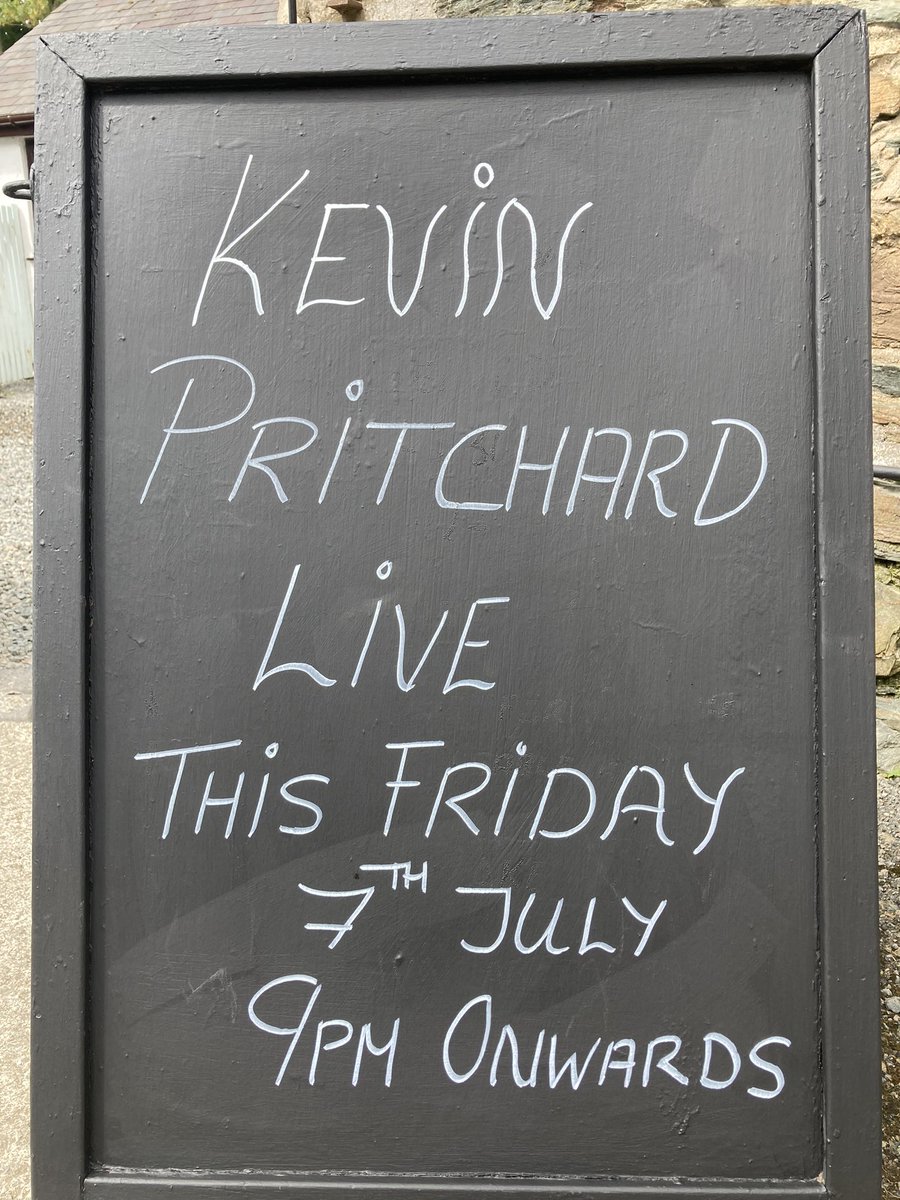 KEVIN
PRITCHARD
LIVE
THIS FRIDAY
7TH JULY
9PM ONWARDS